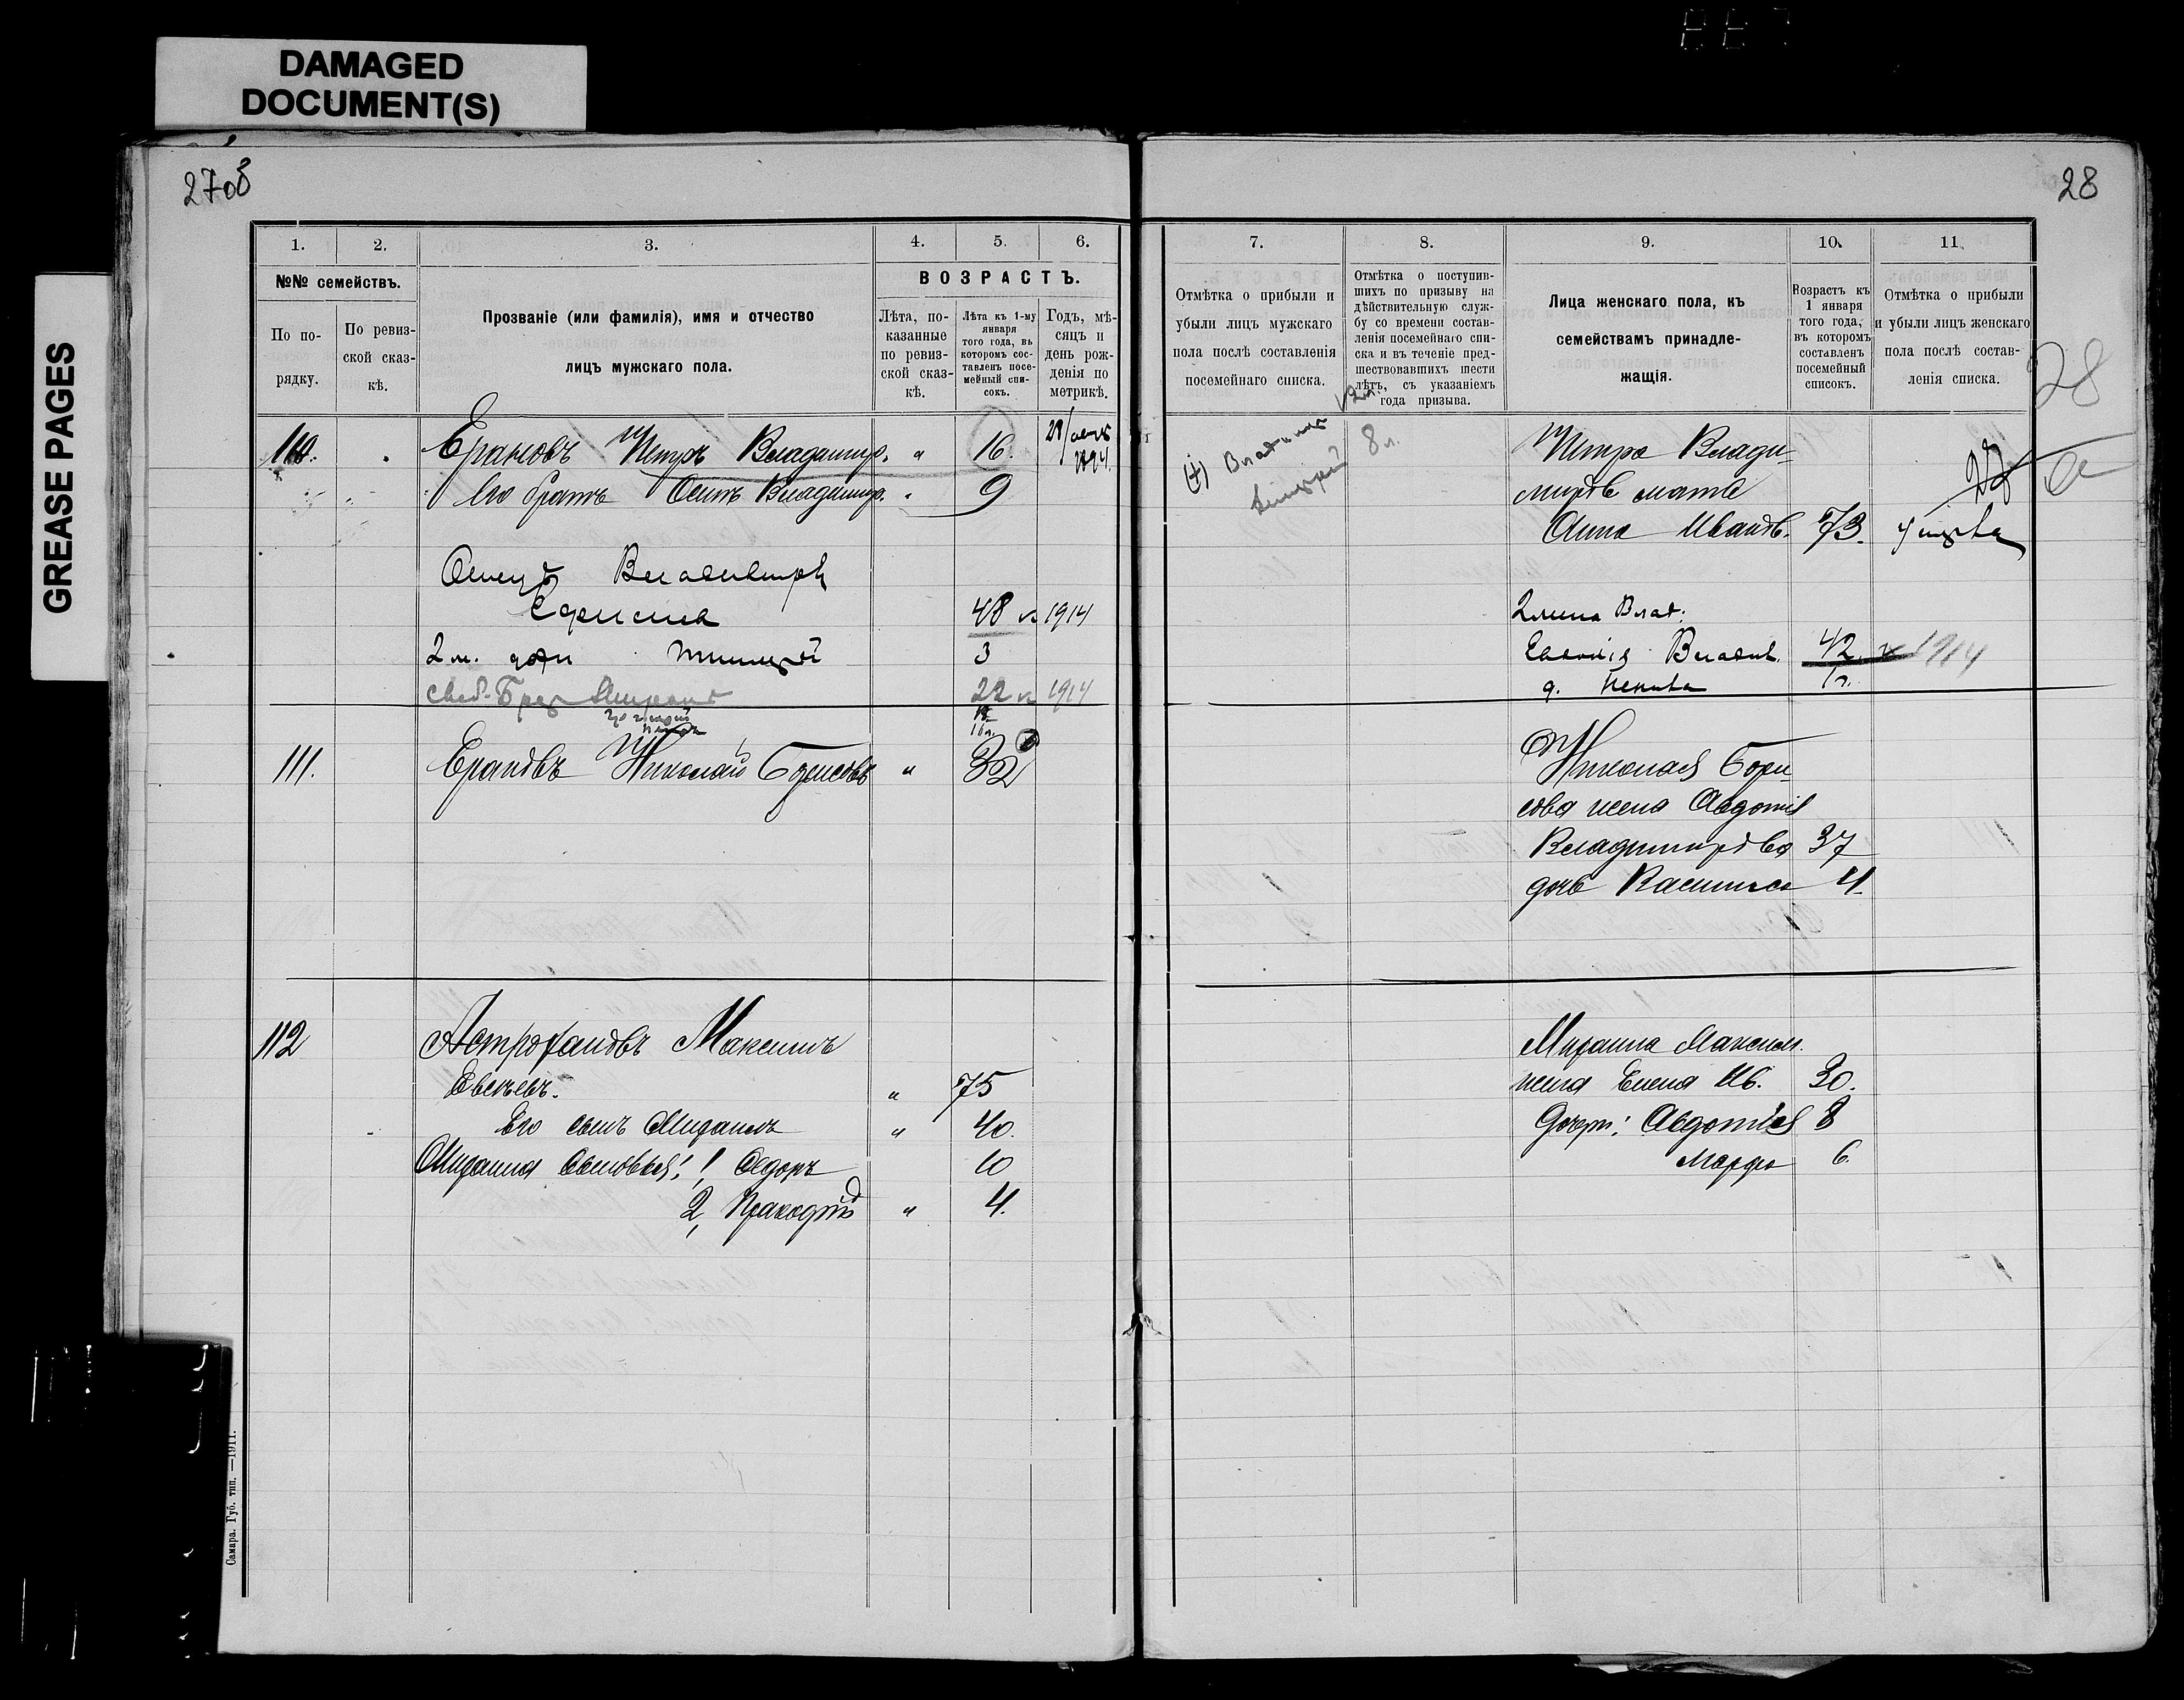 DAMAGED
DOCUMENT(S)
GREASE PAGES
27об
28
1.
2.
3.
4.
5.
6.
№№ семействъ.
По по-
рядку.
По ревиз-
ской сказ-
кѣ.
Прозваніе (или фамилія), имя и отчество
лицъ мужскаго пола.
ВОЗРАСТЪ.
Лѣта, по-
казанные
по ревиз-
ской сказ-
кѣ.
Лѣта къ 1-му
января
того года, въ
которомъ сос-
тавленъ посе-
мейный спи-
сокъ.
Годъ, мѣ-
сяцъ и
день рож-
денія по
метрикѣ.
7.
8.
9.
10.
11.
Отмѣтка о прибыли и
убыли лицъ мужскаго
пола послѣ составленія
посемейнаго списка.
Отмѣтка о поступив-
шихъ по призыву на
дѣйствительную служ-
бу со времени состав-
ленія посемейнаго спи-
ска и въ теченіе пред-
шествовавшихъ шести
лѣтъ, съ указаніемъ
года призыва.
Лица женскаго пола, къ
семействамъ принадле-
жащія.
Возрастъ къ
1 января
того года,
въ которомъ
составленъ
посемейный
списокъ.
Отмѣтка о прибыли
и убыли лицъ женскаго
пола послѣ состав-
ленія списка.
28
110. Ерановъ Петръ Владимир. " 16.
Его братъ Осипъ Владимир. " 9
8 л.
Петра Влади-
мирова мать
Анна Иванов. 73. умерла
Владиміръ
48 1914
3
22 1914
Владим. 42 1914
111. Ерановъ Николай Борисовъ " 32
Николая Бори-
сова жена Авдотія
Владимирова 37
дочь Василиса 4
112 Астрофановъ Максимъ
Евсѣевъ. " 75
Его сынъ Михаилъ " 40.
Михаила сыновья: 1, Ѳедоръ 10
2, " 4.
Михаила Максим.
жена Елена Ив. 30.
Дочери: Авдотія 8
Марфа 6.
Самара. Губ. тип. —1911.